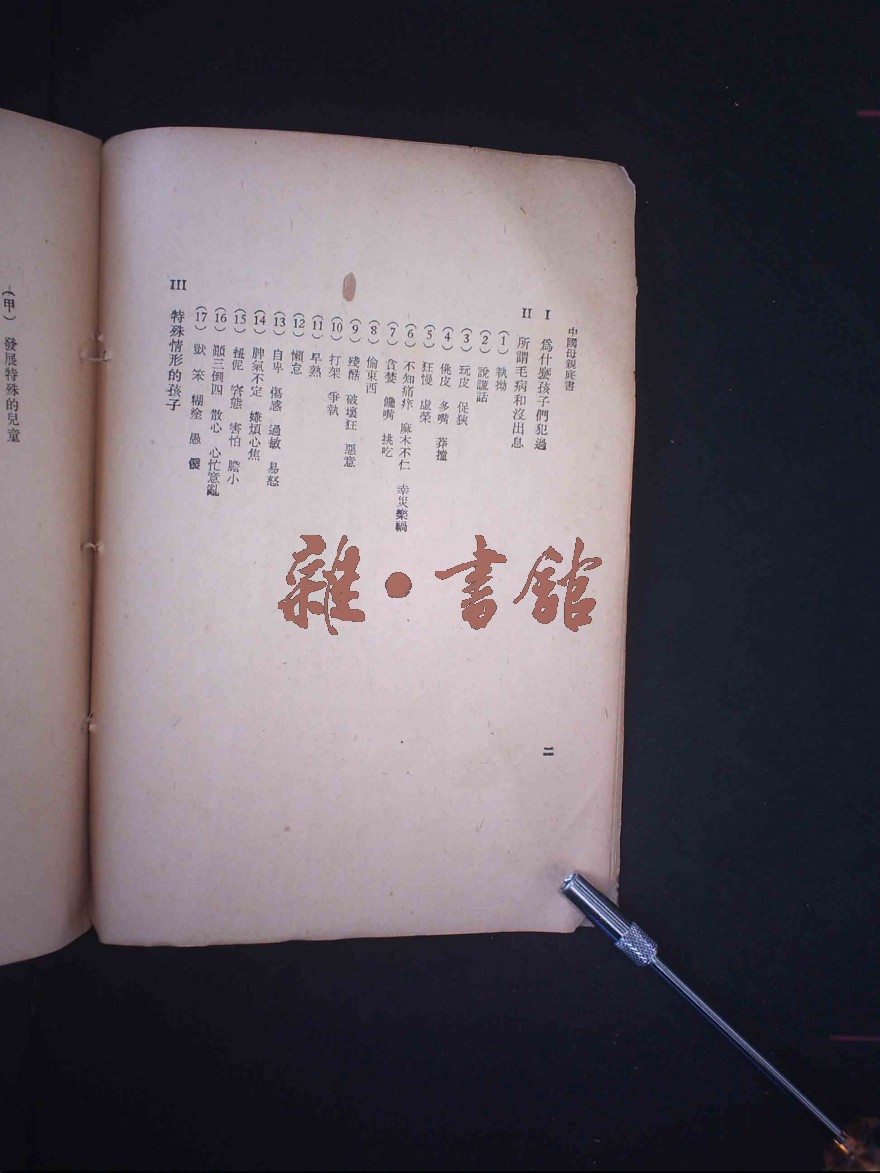 中國母親庭書
I 爲什麼孩子們犯過
II 所謂毛病和沒出息
(1) 執拗
(2) 說謊話
(3) 玩皮 促狹
(4) 佻皮 多嘴 莽撞
(5) 狂慢 虛荣
(6) 不知痛痒 麻木不仁 幸災樂禍
(7) 貪婪 饞嘴 挑吃
(8) 偷東西
(9) 殘酷 破壞狂 惡意
(10) 打架 爭執
(11) 早熟
(12) 懶怠
(13) 自卑 傷感 過敏 易怒
(14) 脾氣不定 嫌煩心焦
(15) 扭伲 窘態 害怕 膽小
(16) 顚三倒四 散心 心忙意亂
(17) 獃 笨 糊塗 愚 儍
III 特殊情形的孩子
二
(甲) 發展特殊的兒童
雜·書館